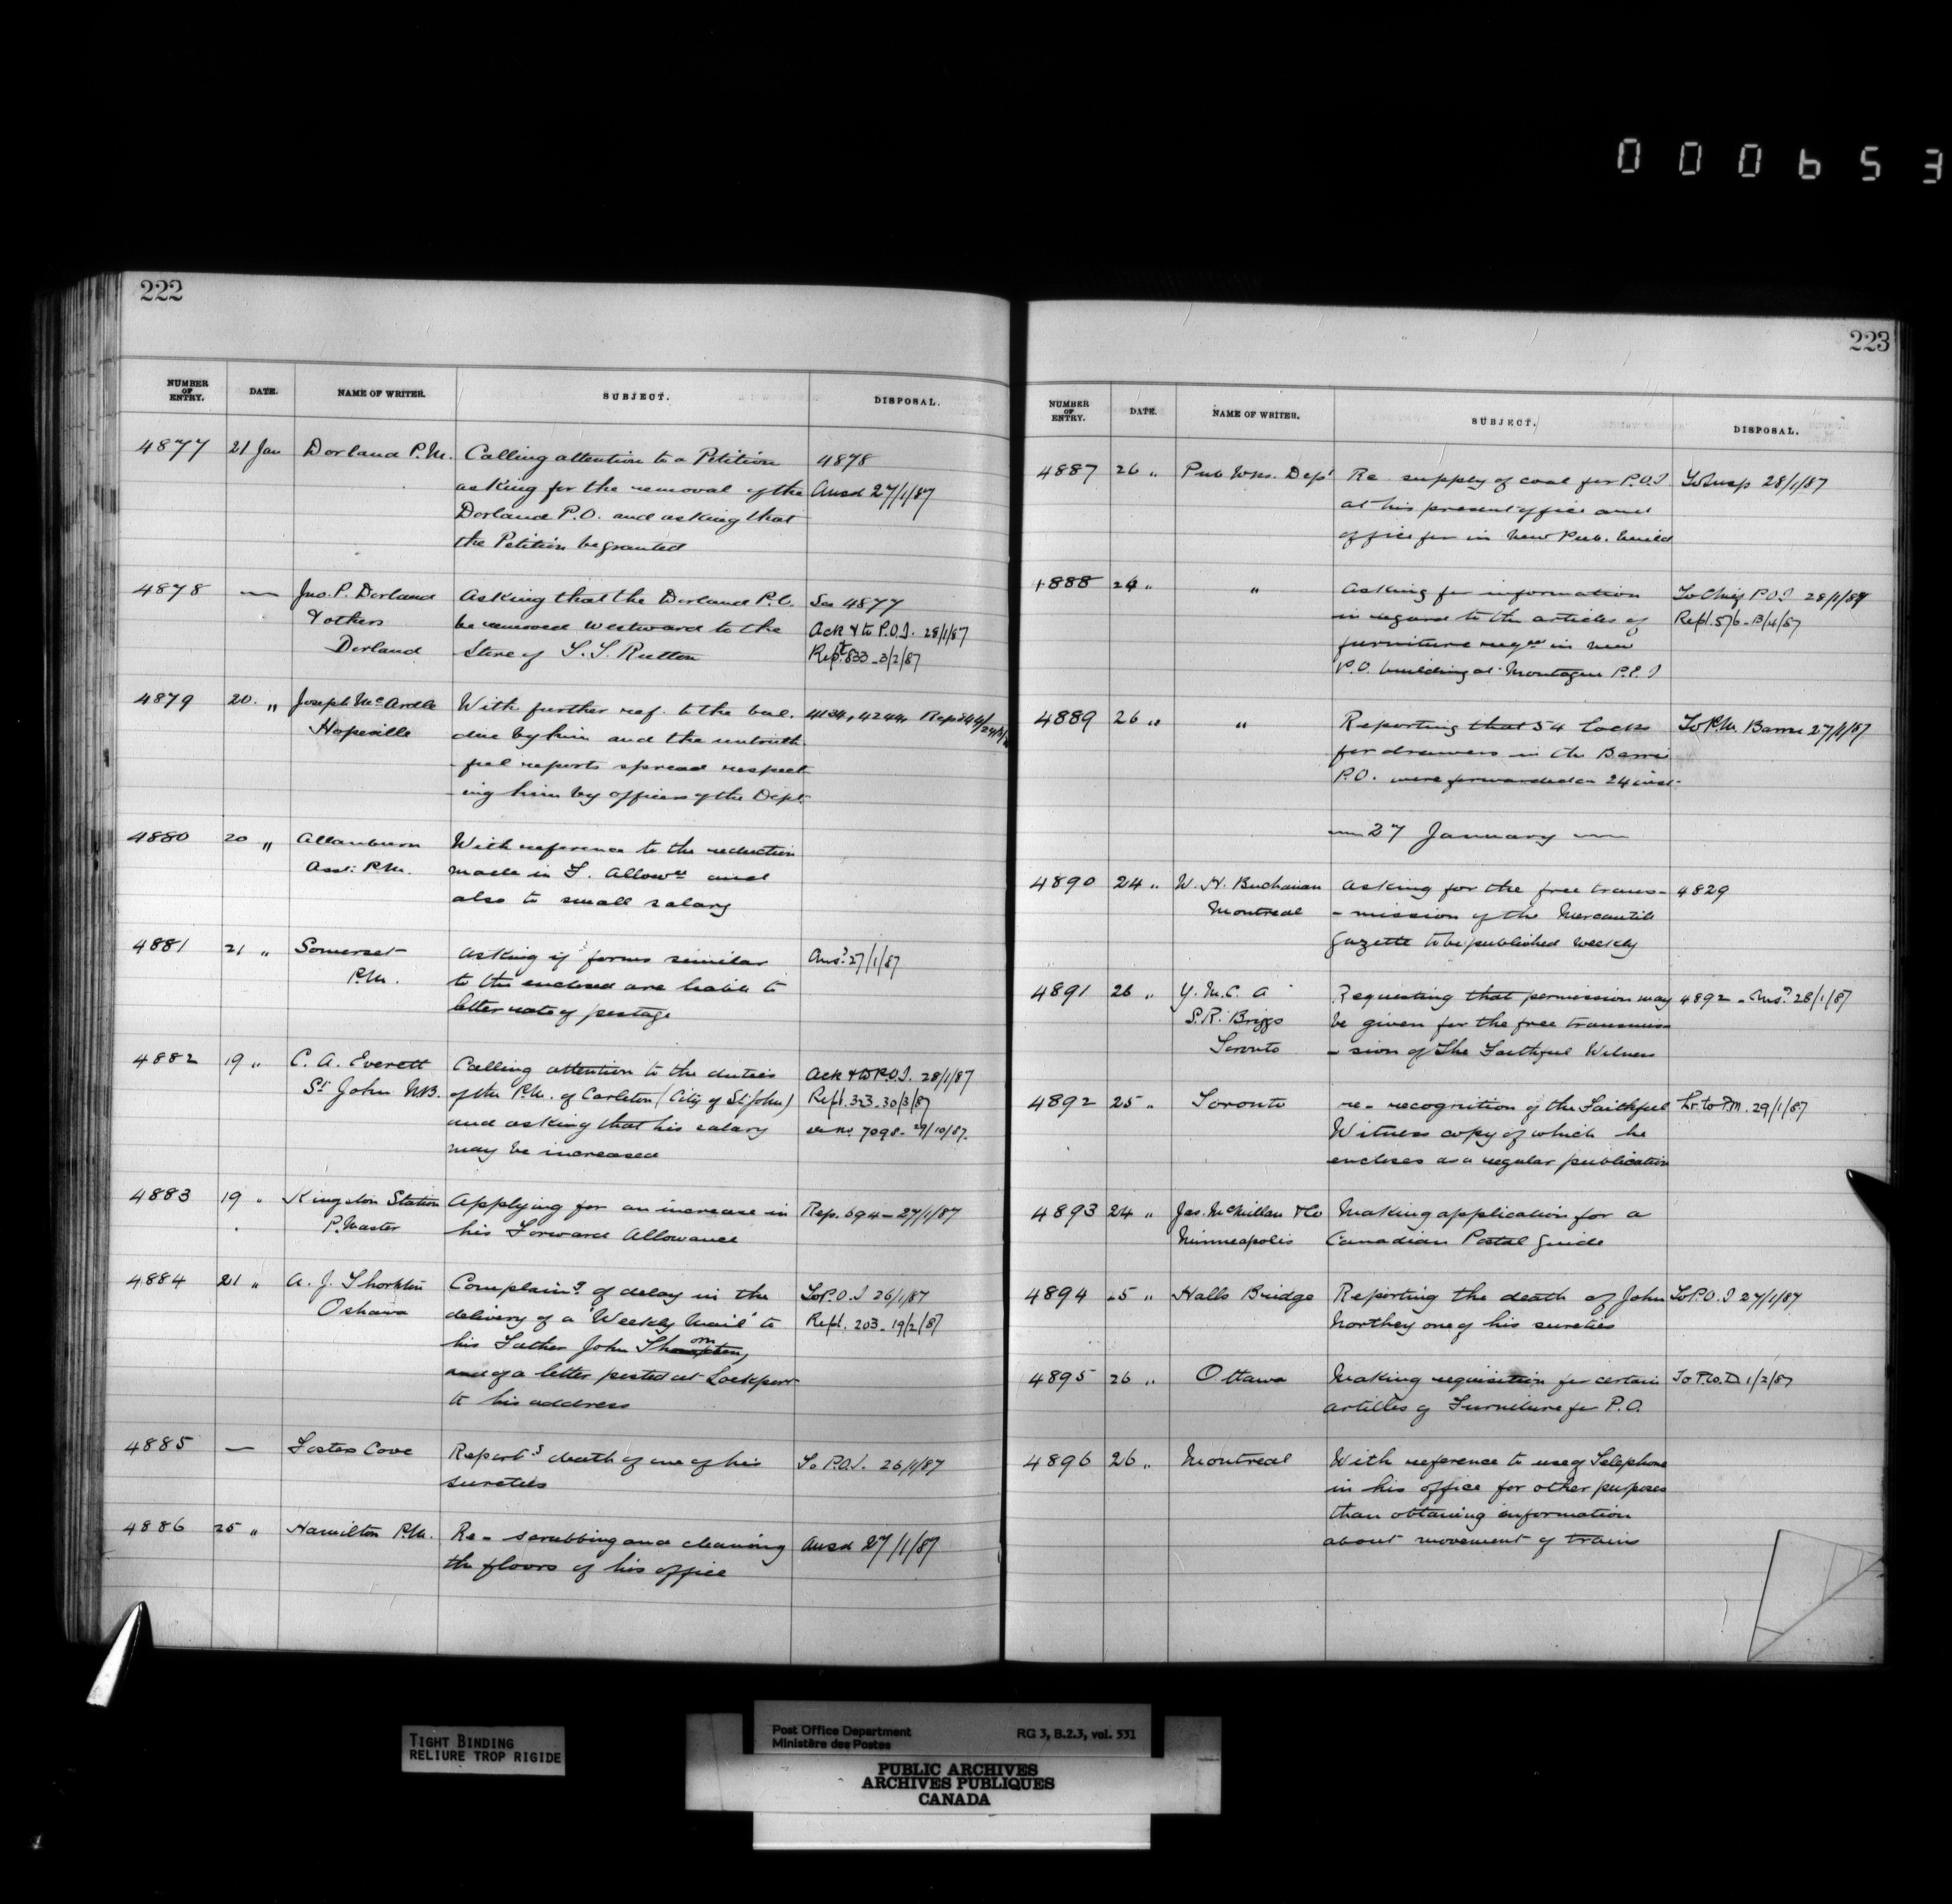 000653
222
NUMBER OF ENTRY. DATE. NAME OF WRITER. SUBJECT. DISPOSAL.
4877 21 Jan Dorland P.M. Calling attention to a Petition 4878
asking for the removal of the Ansd 27/1/87
Dorland P.O. and asking that
the Petition be granted
4878 — Jno. P. Dorland Asking that the Dorland P.O. See 4877
& others be removed westward to the Ack & to P.O.I. 28/1/87
Dorland Store of S. S. Rutton Rept 833 - 3/2/87
4879 20 " Joseph McArdle With further ref. to the bal. 4134, 4244
Hopeville due by him and the untruth
- ful reports spread respect
- ing him by officers of the Dept.
4880 20 " Allanburn With reference to the reduction
Asst: P.M. made in F. Allowce and
also to small salary
4881 21 " Somerset Asking if forms similar Ansd 27/1/87
P.M. to the enclosed are liable to
letter rate of postage
4882 19 " C. A. Everett Calling attention to the duties Ack & to P.O.I. 28/1/87
St John N.B. of the P.M. of Carleton (City of St John) Rept. 33 - 30/3/87
and asking that his salary 7098 - 29/10/87
may be increased
4883 19 " Kingston Station Applying for an increase in Rep. 694 - 27/1/87
P. Master his Forward Allowance
4884 21 " A. J. Complaing of delay in the To P.O.I 26/1/87
Oshawa delivery of a 'Weekly Mail' to Rept. 203 - 19/2/87
his Father John
and of a letter posted at Lockport
to his address
4885 — Fosters Cove Reportg death of one of his To P.O.I. 26/1/87
sureties
4886 25 " Hamilton P.M. Re - scrubbing and cleaning Ansd 27/1/87
the floors of his office
223
NUMBER OF ENTRY. DATE. NAME OF WRITER. SUBJECT. DISPOSAL.
4887 26 " Pub Wks. Dept Re supply of coal for P.O.I To Insp 28/1/87
at his present office and
office for in new Pub. build
4888 24 " " Asking for information To Chief P.O.I 28/1/87
in regard to the articles of Rept. 576 - 13/4/87
furniture reqd in new
P.O. building at Montague P.E.I
4889 26 " " Reporting that 54 locks To P.M. Barrie 27/1/87
for drawers in the Barrie
P.O. were forwarded on 24 inst.
— 27 January —
4890 24 " W. N. Buchanan Asking for the free trans- 4829
Montreal - mission of the Mercantile
Gazette to be published weekly
4891 26 " Y. M. C. A Requesting that permission may 4892 - Ansd 28/1/87
S. R. Briggs be given for the free transmis
Toronto - sion of The Faithful Witness
4892 25 " Toronto re - recognition of the Faithful Lr. to P.M. 29/1/87
Witness copy of which he
encloses as a regular publication
4893 24 " Jas. McMillan & Co Making application for a
Minneapolis Canadian Postal Guide
4894 25 " Halls Bridge Reporting the death of John To P.O.I 27/1/87
Northey one of his sureties
4895 26 " Ottawa Making requisition for certain To P.W.D 1/2/87
articles of Furniture for P.O.
4896 26 " Montreal With reference to use of Telephone
in his office for other purposes
than obtaining information
about movement of trains
TIGHT BINDING
RELIURE TROP RIGIDE
Post Office Department RG 3, B.2.3, vol. 531
Ministère des Postes
PUBLIC ARCHIVES
ARCHIVES PUBLIQUES
CANADA